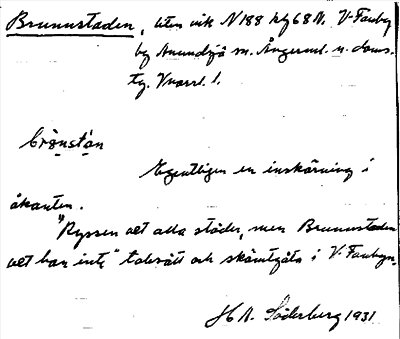 Brunnstaden, liten vik N188 kfg 68 N. V-Fanby
by Anundsjö sn. Ångerml. n. doms.
tg. Vnorrl. l.
brònstàn
Egentligen en inskärning i
åkanten.
"Ryssen vet alla städer, men Brunnstaden
vet han inte" talesätt och skämtgåta i V. Fanbyn.
H N. Söderberg 1931